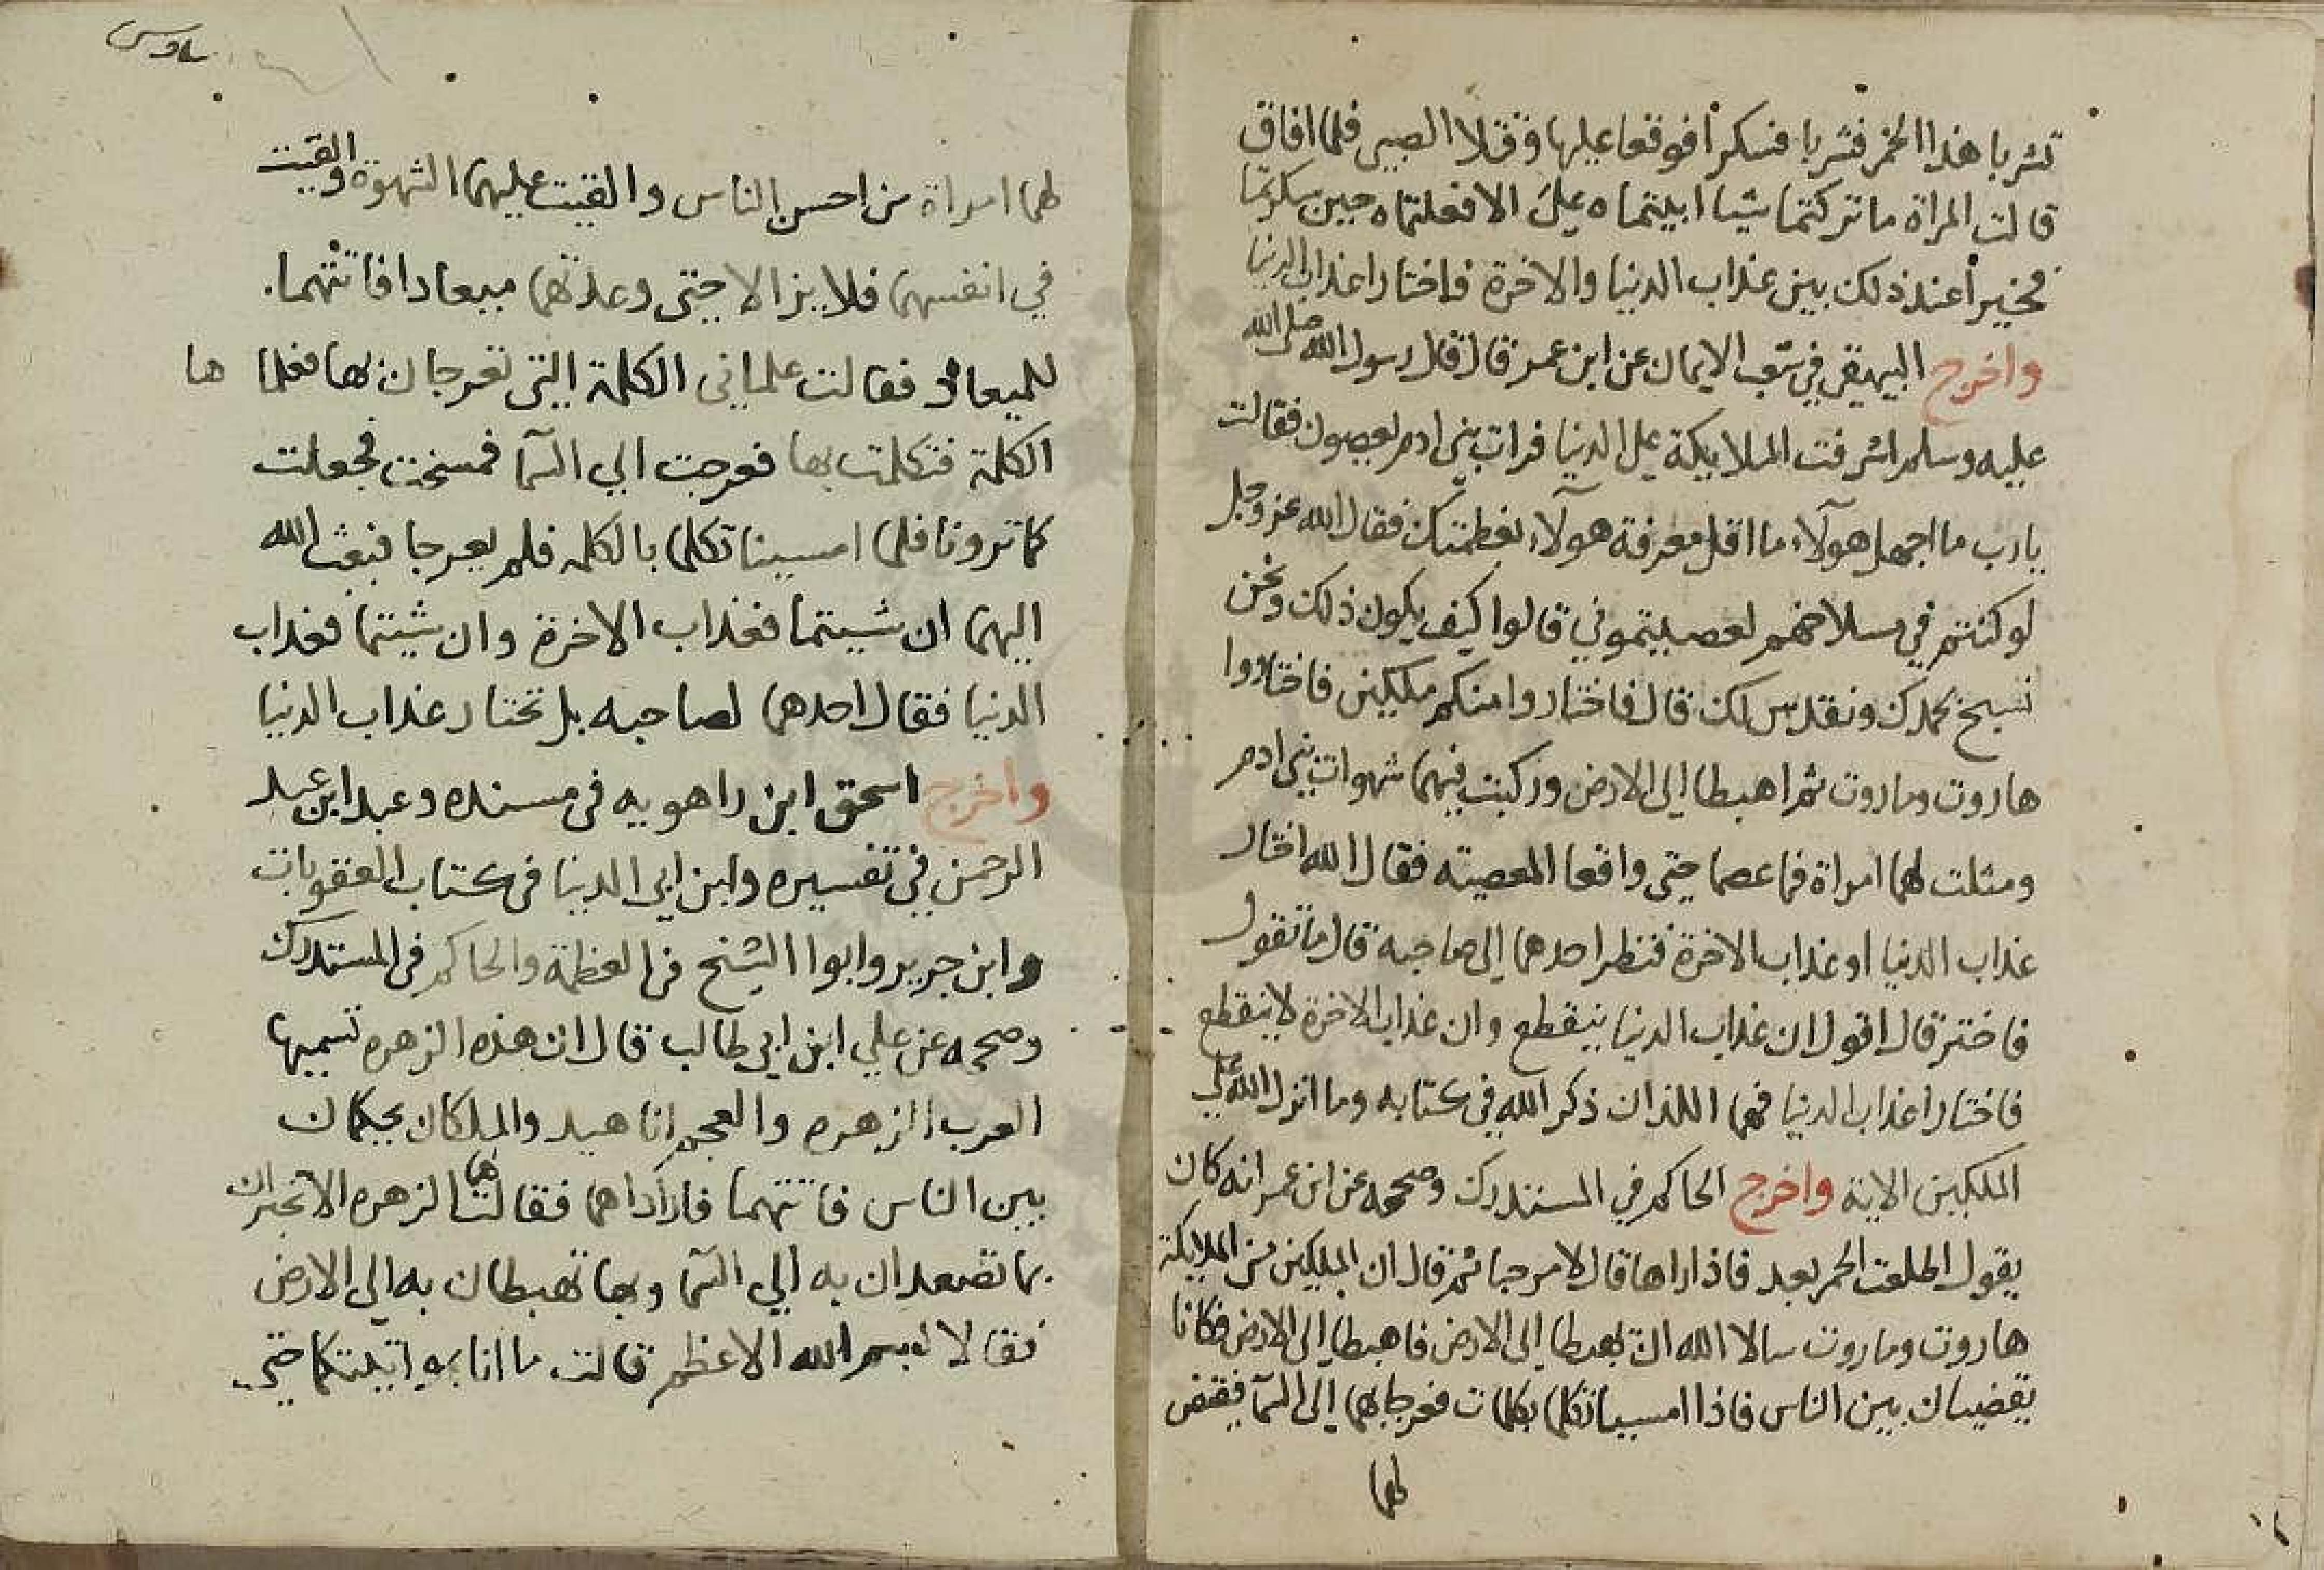 تشربا هذا الخمر فشربا فسكرا فوقعا عليها وقتلا الصبي فلما افاق
قالت المراة ما تركتما شيا ابيتماه علي الا فعلتماه حين سكرتما
فخيرا عند ذلك بين عذاب الدنيا والاخرة فاختارا عذاب الدنيا
واخرج البيهقي في شعب الايمان عن ابن عمر قال قال رسول الله صلى الله
عليه وسلم اشرفت الملايكة على الدنيا فرات بني ادم يعصون فقالت
يارب ما اجهل هولآء ما اقل معرفة هولآء بعظمتك فقال الله عز وجل
لو كنتم في مسلاخهم لعصيتموني قالوا كيف يكون ذلك ونحن
نسبح بحمدك ونقدس لك قال فاختاروا منكم ملكين فاختاروا
هاروت وماروت ثم اهبطا الى الارض وركبت فيهما شهوات بني ادم
ومثلت لهما امراة فما عصما حتى واقعا المعصيته فقال الله اختارا
عذاب الدنيا او عذاب الاخرة فنظر احدهما الى صاحبه قال ما تقول
فاختر قال اقول ان عذاب الدنيا ينقطع وان عذاب الاخرة لا ينقطع
فاختارا عذاب الدنيا فهما اللذان ذكر الله في كتابه وما انزل الله علي
الملكين الاية واخرج الحاكم في المستدرك وصححه عن ابن عمر انه كان
يقول اطلعت الحمر بعد فاذا راها قال لا مرحبا ثم قال ان الملكين من الملايكة
هاروت وماروت سالا الله ان يهبطا الى الارض فاهبطا الى الارض فكانا
يقضيان بين الناس فاذا امسيا تكلما بكلمات فعرجا بهما الى السما فقيض
لهما
لهما امراة من احسن الناس والقيت عليهما الشهوة والقيت
في انفسهما فلا يزالا حتى وعدتهما ميعادا فاتتهما
للميعاد فقالت علماني الكلمة التي تعرجان بها فعلما ها
الكلمة فتكلمت بها فعرجت الي السما فمسخت فجعلت
كما ترونا فلما امسينا تكلما بالكلمه فلم يعرجا فبعث الله
اليهما ان شيتما فعذاب الاخرة وان شيتما فعذاب
الدنيا فقال احدهما لصاحبه بل نختار عذاب الدنيا
واخرج اسحق ابن راهويه في مسنده وعبد ابن عبد
الرحمن في تفسيره وابن ابي الدنيا في كتاب العقوبات
وابن جرير وابوا الشيخ في العظمة والحاكم في المستدرك
وصححه عن علي ابن ابي طالب قال ان هذه الزهره تسميها
العرب الزهره والعجم اناهيد والملكان يحكمان
بين الناس فاتتهما فاراداهما فقالت لهما الزهره الا تخبران
بما تصعدان به الي السما وبما تهبطان به الي الارض
فقالا بسم الله الاعظم قالت ما انا بمواتيتكما حتى